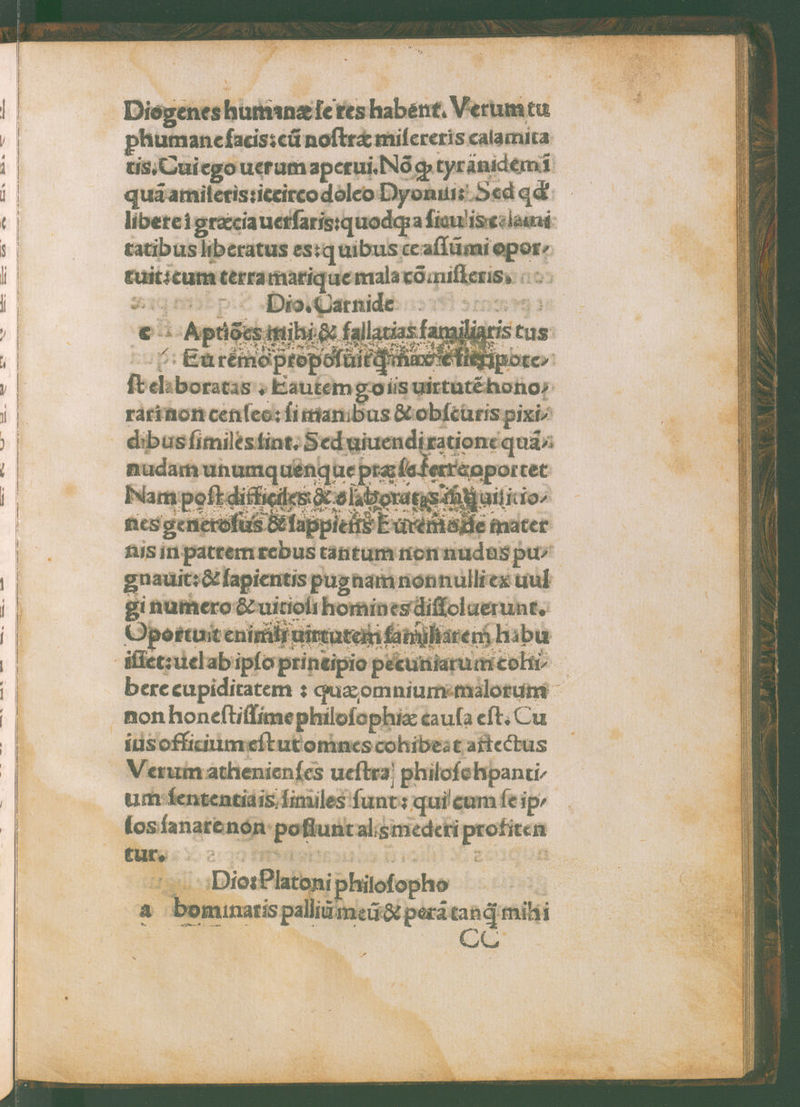 Diogenes humanæ ſe res habent. Verum tu
phumane facis: cū noſtræ miſereris calamita
tis, Cui ego uerum aperui. Nō ꝙ tyránidem ī
quá amiſeris: iccirco doleo Dyoniſi: Sed qd̛
libere ī græcia uerſaris: quodqȝ a ſiculis calami
tatibus liberatus es: quibus te aſſūmi opor⸗
tuit: cum terra marique mala cōmiſſeris,
Dio. Carnide
c Aptiōes mihi & fallatias familiaris tus
Eu remo
ſt elaboratas, Eautem go iis uirtutē hono⸗
rári non cenſeo: ſi manibus & obſcuris pixi⸗
dibus ſimiles ſint. Sed uiuendi ratione quá⸗
nudam unumquenque præ ſe ferre oportet
Nam poſt difficiles & elaboratas
nes generoſus & ſappiens Euremo de mater
nis in patrem rebus tantum non nudus pu⸗
gnauit: & ſapientis pugnam nonnulli ex uul
gi numero & uitioſi homines diſſoluerunt.
Oportuit enim uirtutem familiarem habu
iſſet: uel ab ipſo principio pecuniarum cohi⸗
bere cupiditatem : quæ omnium malorum
non honeſtiſſime philoſophiæ cauſa eſt. Cu
ius officium eſt ut omnes cohibeat affectus
Verum athenienſes ueſtra philoſohpanti⸗
um ſententia is, ſimiles ſunt: qui cum ſe ip⸗
ſos ſanare non poſſunt aliis mederi profiten
tur.
Dio: Platoni philoſopho
a bominaris palliū meū & perá tanꝗ̄ mihi
CC